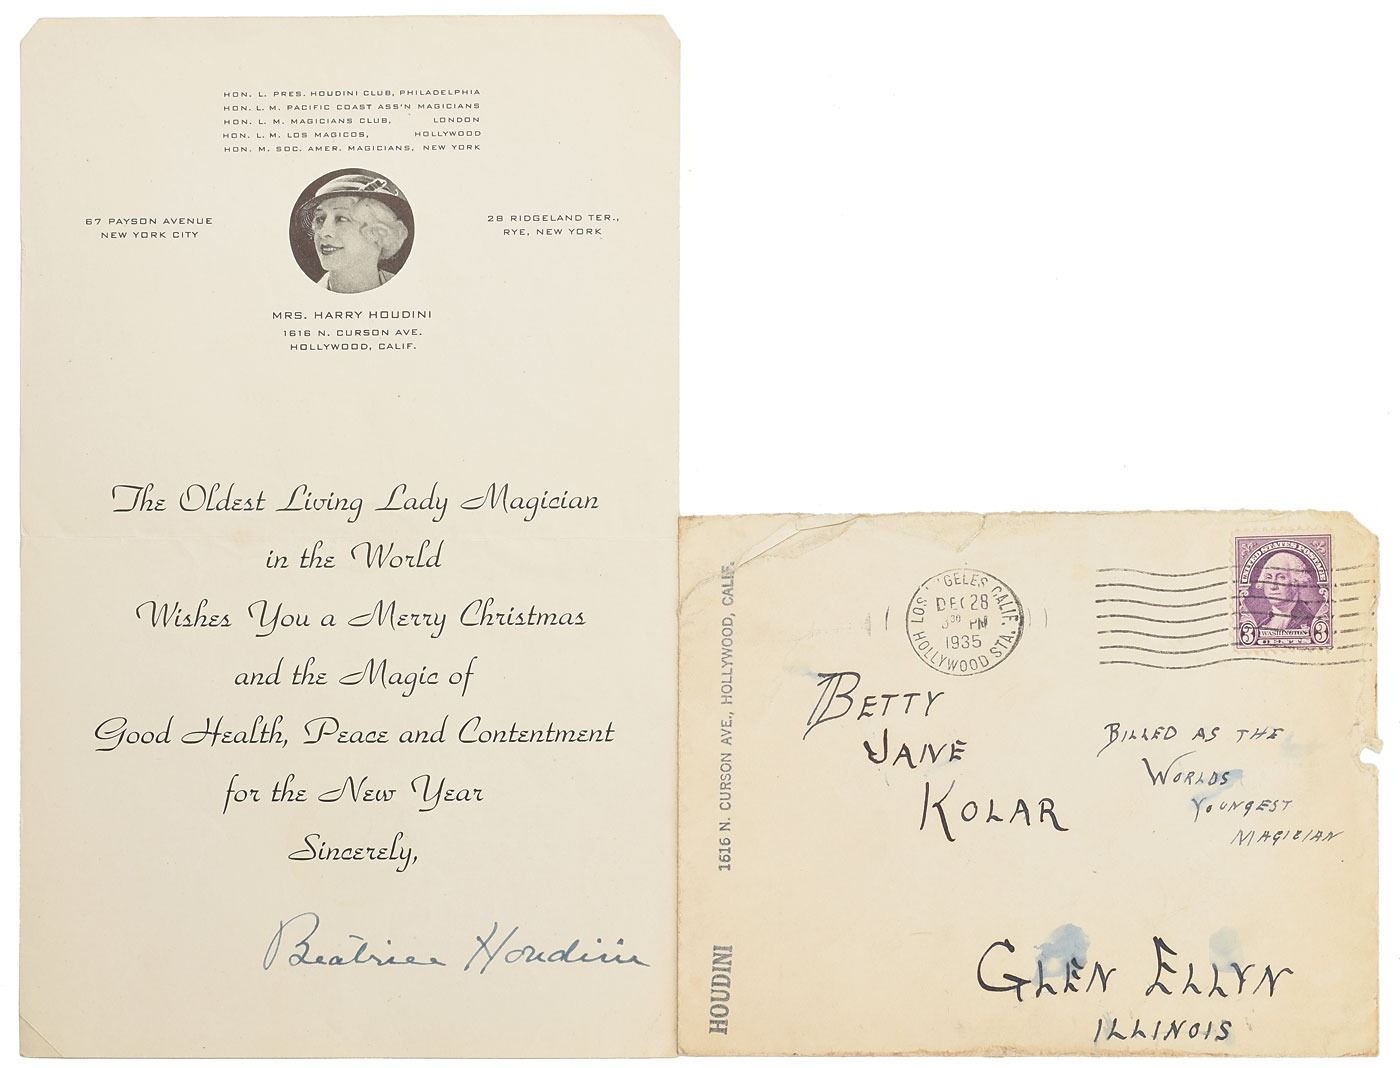 HON. L. PRES. HOUDINI CLUB, PHILADELPHIA
HON. L. M. PACIFIC COAST ASS'N MAGICIANS
HON. L. M. MAGICIANS CLUB, LONDON
HON. L. M. LOS MAGICOS, HOLLYWOOD
HON. M. SOC. AMER. MAGICIANS, NEW YORK
67 PAYSON AVENUE
NEW YORK CITY
28 RIDGELAND TER.,
RYE, NEW YORK
MRS. HARRY HOUDINI
1616 N. CURSON AVE.
HOLLYWOOD, CALIF.
The Oldest Living Lady Magician
in the World
Wishes You a Merry Christmas
and the Magic of
Good Health, Peace and Contentment
for the New Year
Sincerely,
Beatrice Houdini
HOUDINI 1616 N. CURSON AVE., HOLLYWOOD, CALIF.
LOS ANGELES, CALIF.
DEC 28
3 30 PM
1935
HOLLYWOOD STA.
UNITED STATES POSTAGE
3 WASHINGTON 3
CENTS
BETTY
JANE
KOLAR
BILLED AS THE
WORLDS
YOUNGEST
MAGICIAN
GLEN ELLYN
ILLINOIS